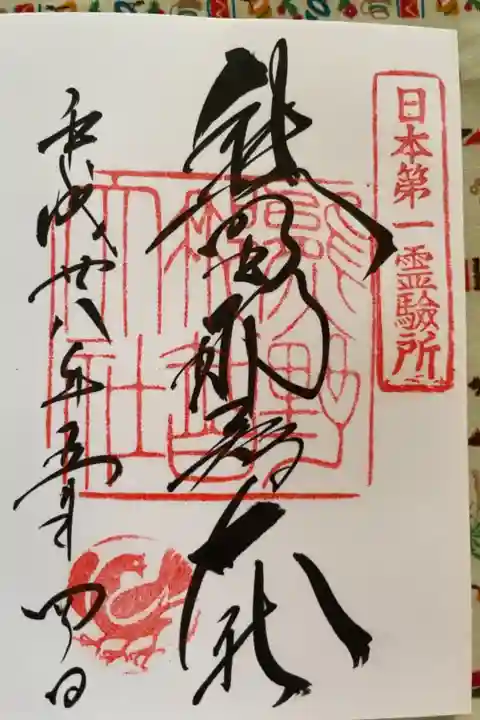 日本第一霊験所
熊野那智大社
平成廿八年五月四日
熊野
那智
大社